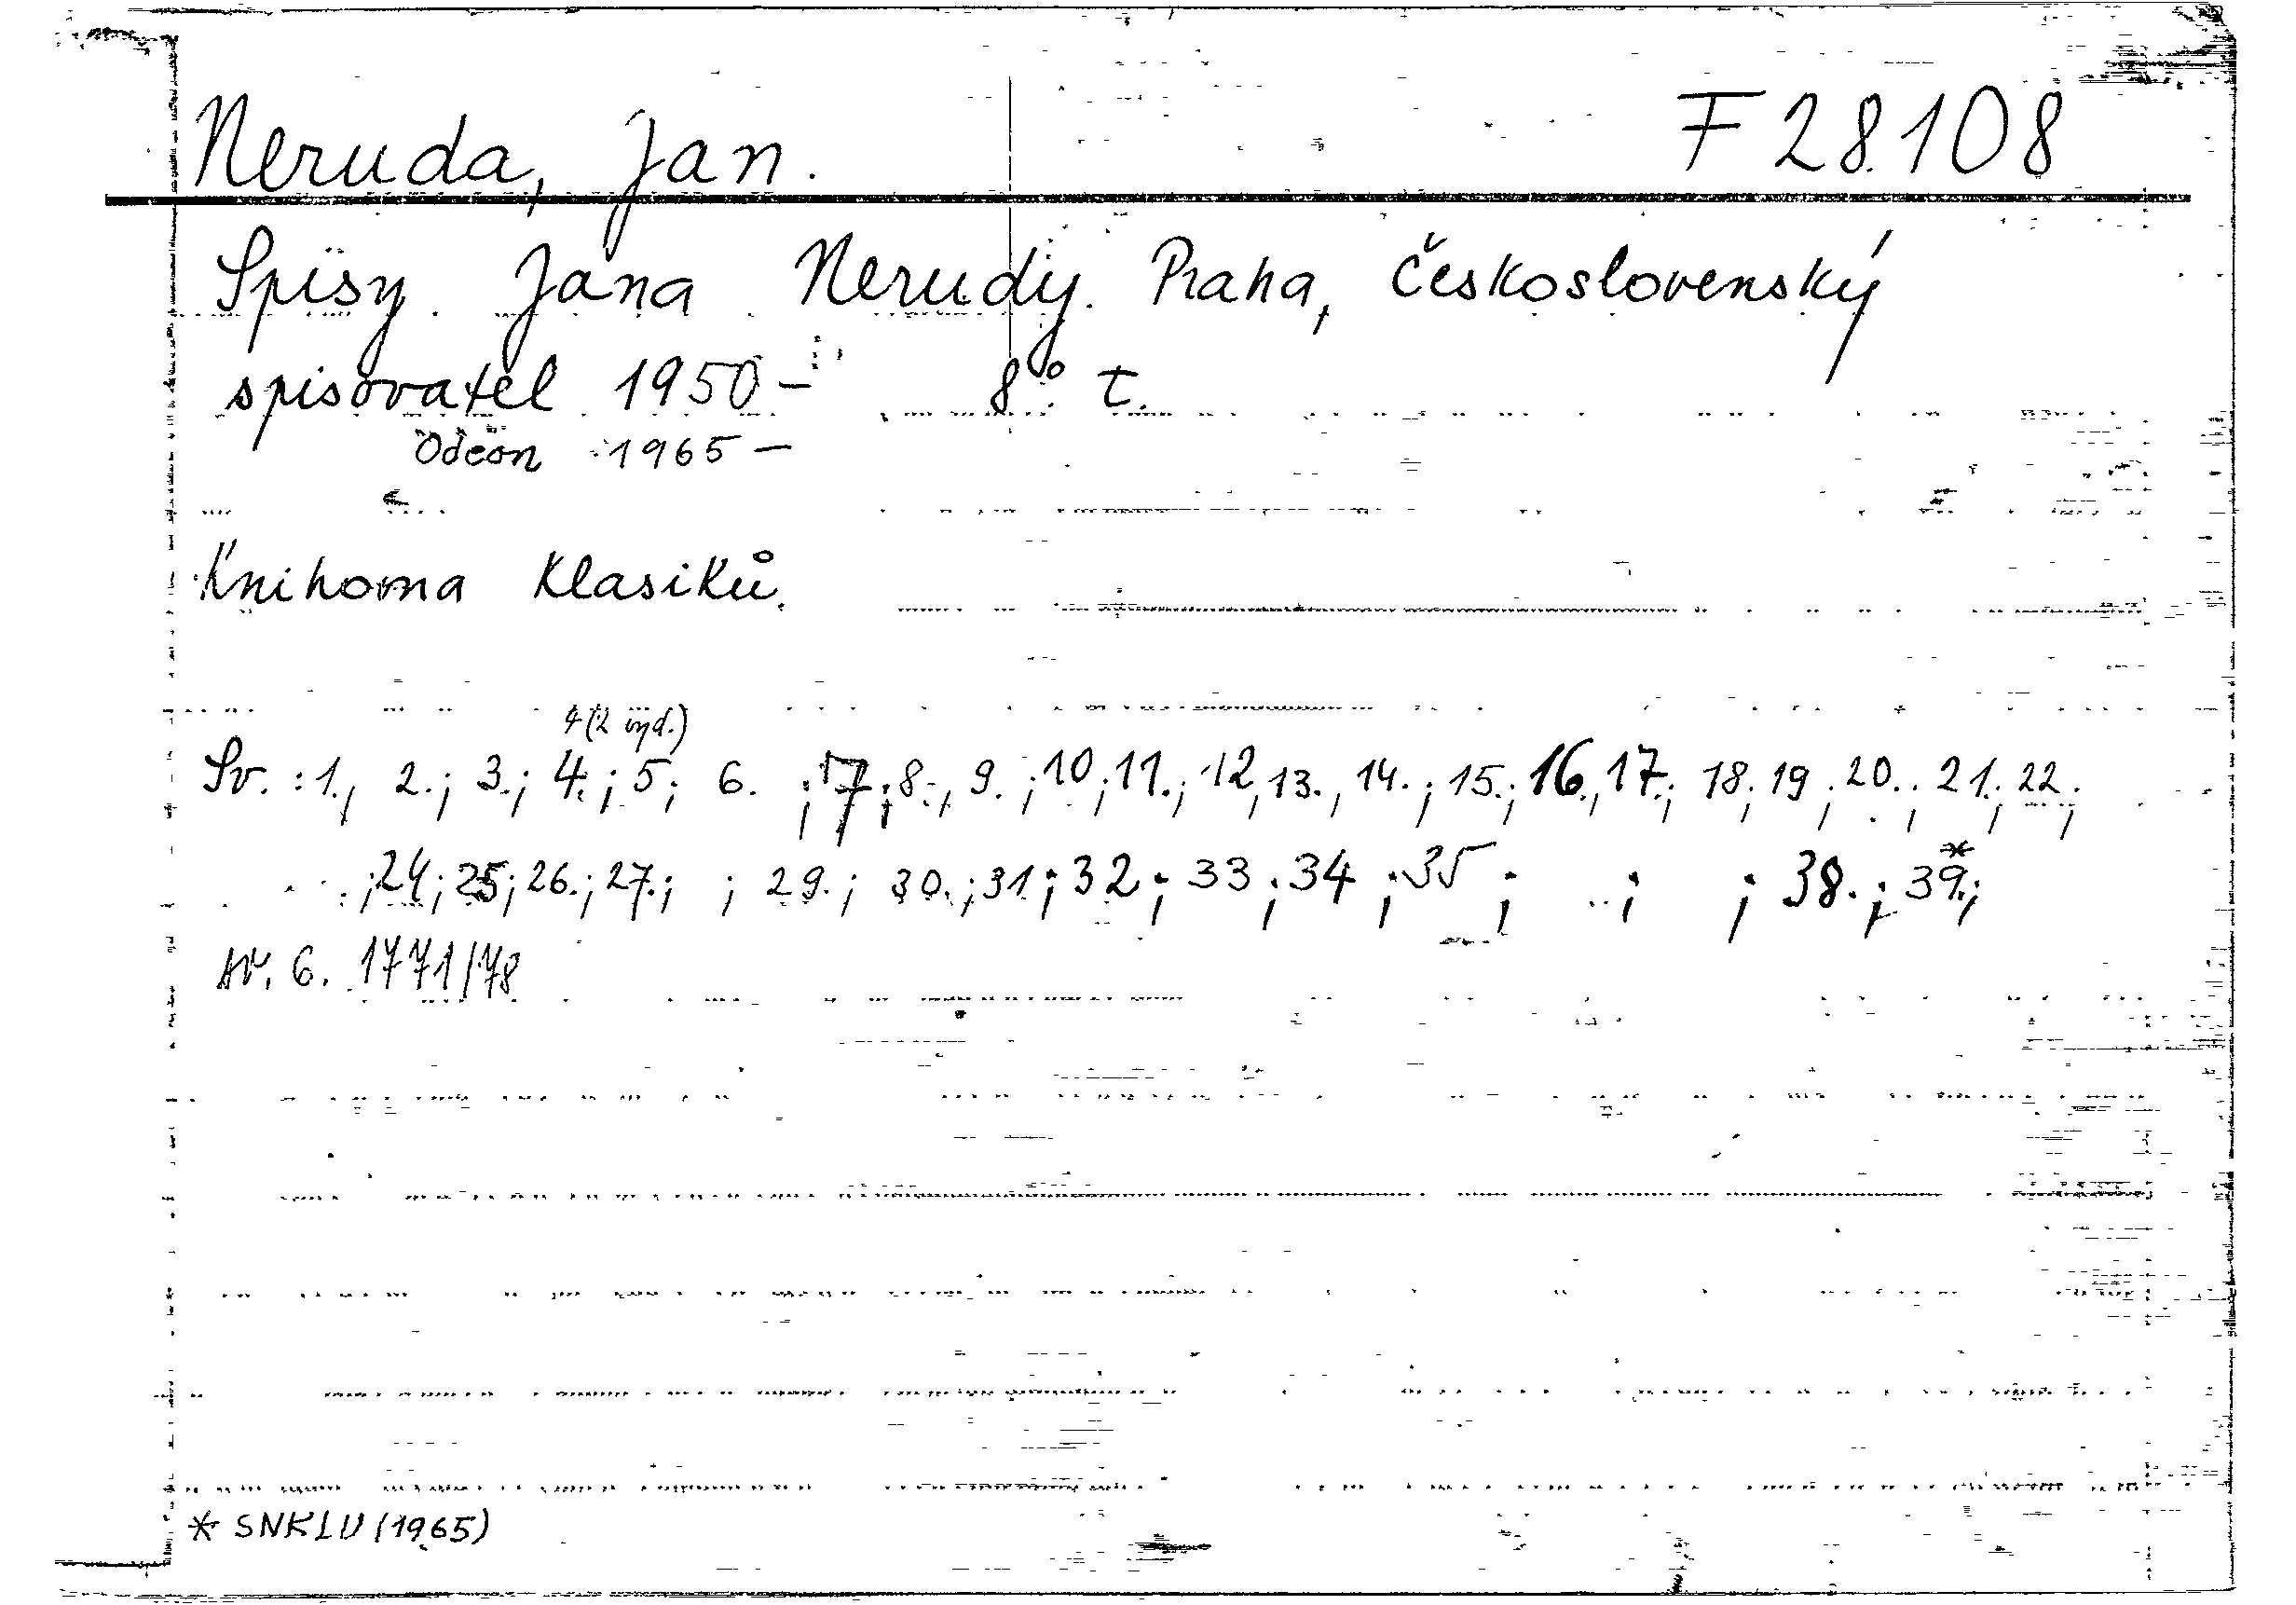 Neruda, Jan. F 28.108
Spisy Jana Nerudy. Praha, Československý
spisovatel 1950- 8° t.
Odeon 1965-
Knihovna Klasiků.
4 (2 vyd.)
Sv. : 1., 2.; 3.; 4.; 5; 6. ; 7; 8., 9. ; 10; 11.; 12, 13., 14. ; 15.; 16., 17.; 18; 19 ; 20. ; 21.; 22;
; 24; 25; 26.; 27.; ; 29.; 30.; 31; 32; 33; 34; 35; ; ; 38.; 39*.;
sv. 6. 1771/78
* SNKLU (1965)